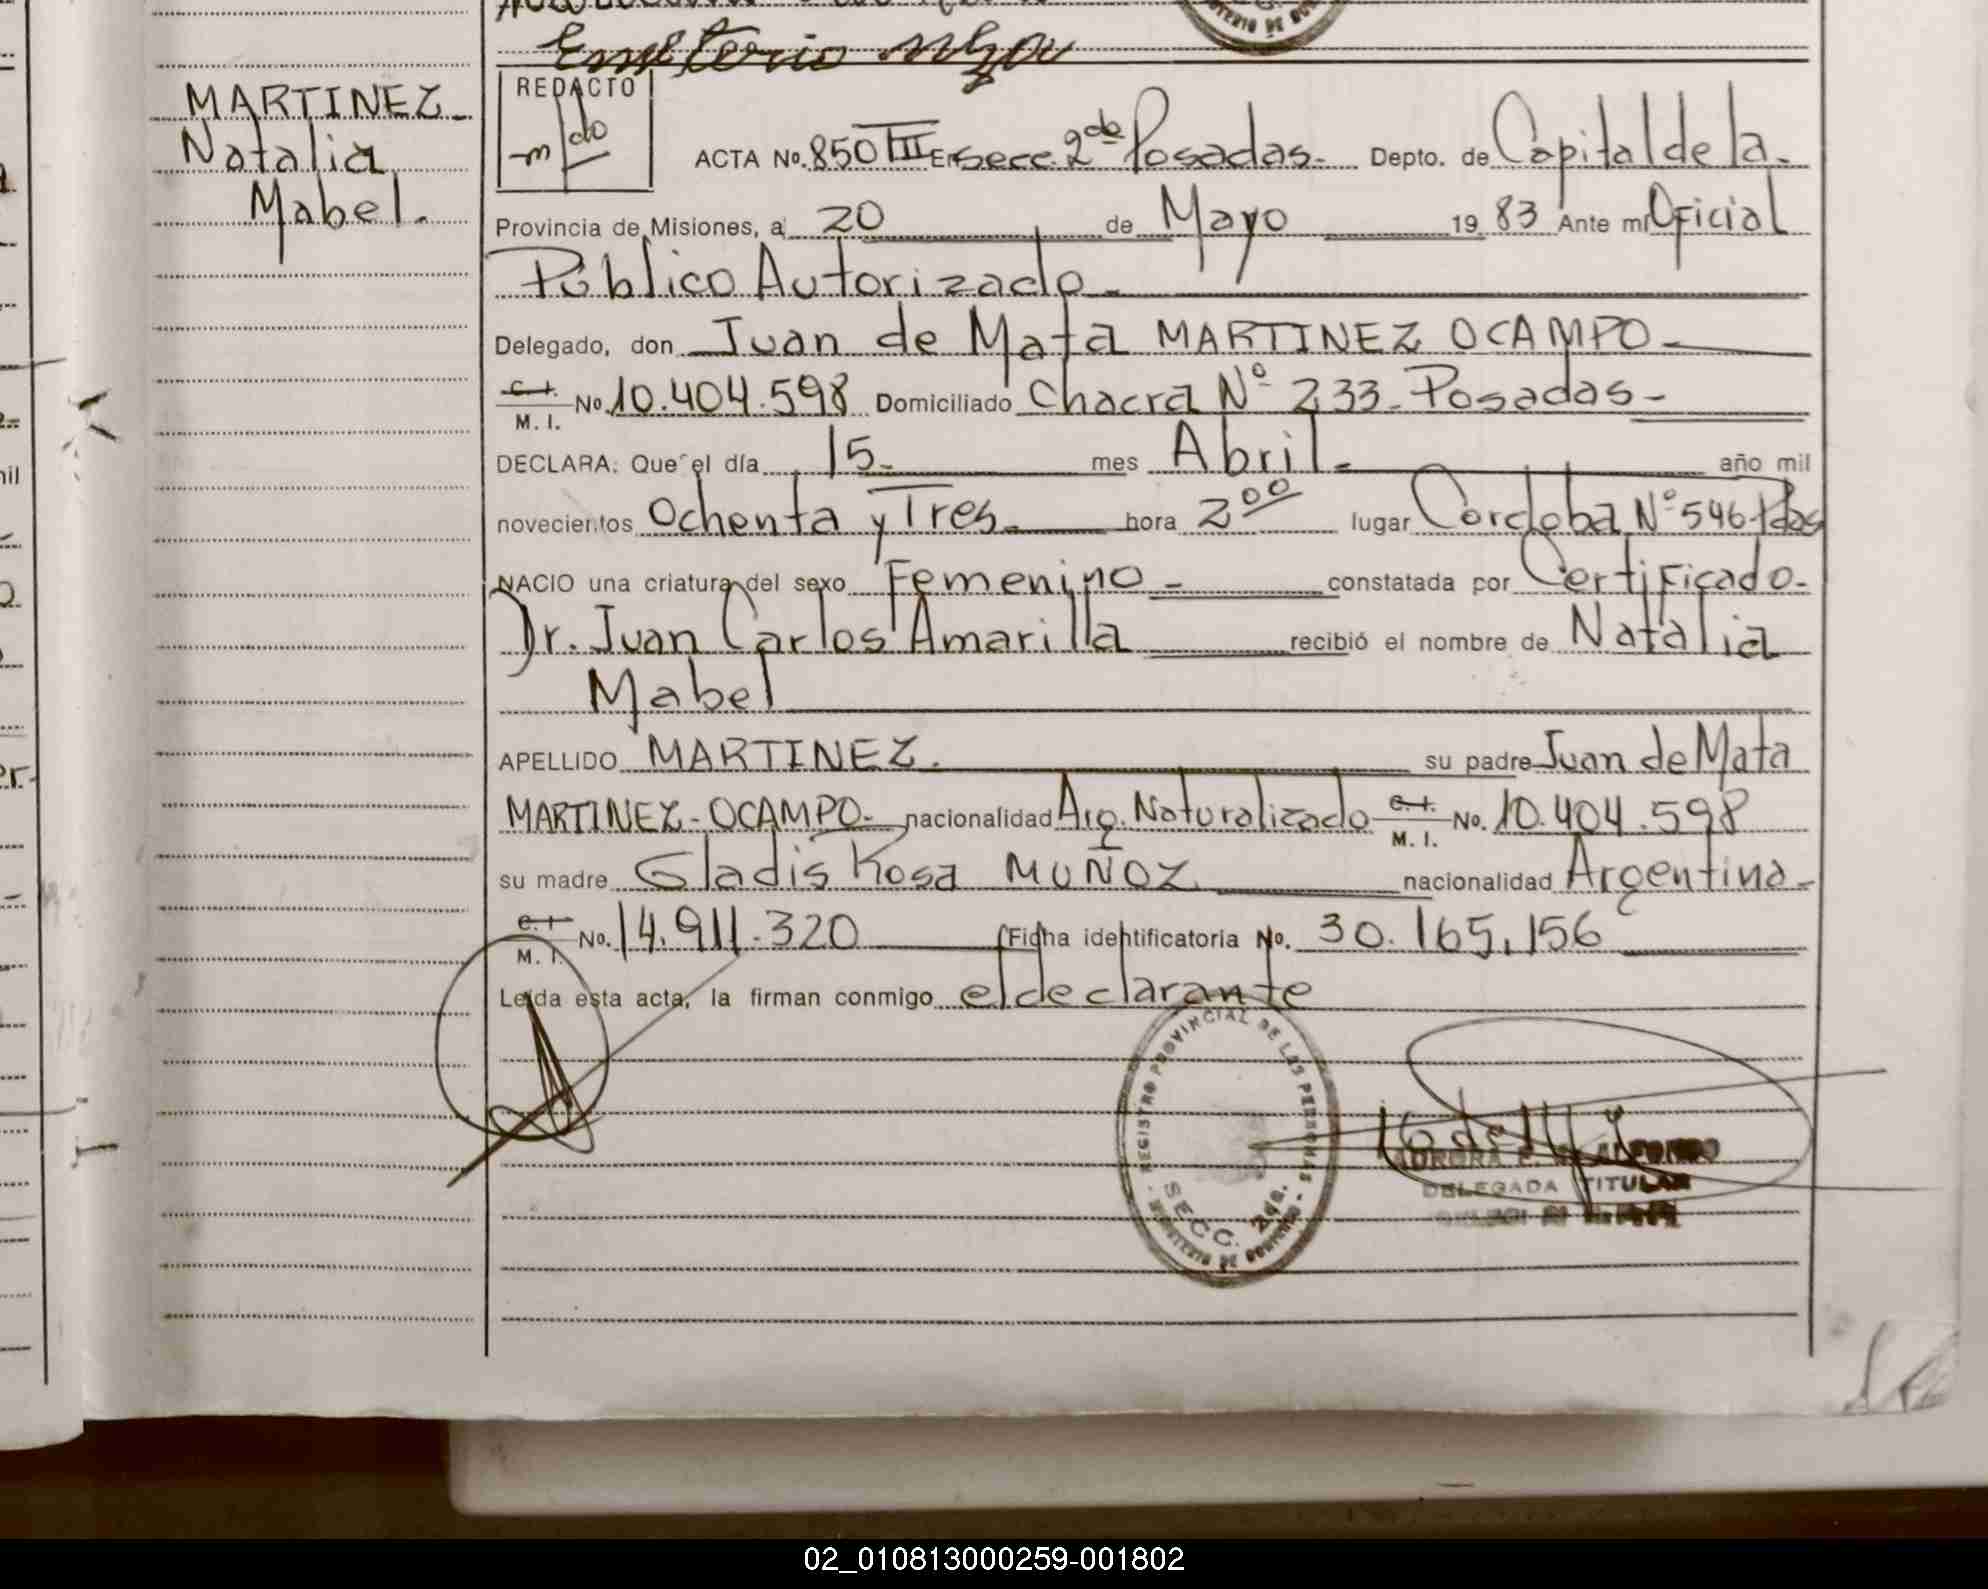 MARTINEZ
Natalia
Mabel.
REDACTO
ACTA No. 850 III En secc. 2da Posadas. Depto. de Capital de la
Provincia de Misiones, a 20 de Mayo 1983 Ante mi Oficial
Público Autorizado.
Delegado, don Juan de Mata MARTINEZ OCAMPO
C.I.
M. I. No. 10.404.598 Domiciliado Chacra Nº 233 - Posadas -
DECLARA: Que el día 15 mes Abril año mil
novecientos Ochenta y Tres hora 2 00 lugar Cordoba Nº 546 Pdas
NACIO una criatura del sexo Femenino - constatada por Certificado
Dr. Juan Carlos Amarilla recibió el nombre de Natalia
Mabel
APELLIDO MARTINEZ. su padre Juan de Mata
MARTINEZ - OCAMPO - nacionalidad Arg. Naturalizado C.I. M. I. No. 10.404.598
su madre Gladis Rosa MUÑOZ nacionalidad Argentina -
C.I.
M. I. No. 14.911.320 Ficha identificatoria No. 30.165.156
Leida esta acta, la firman conmigo el declarante
REGISTRO PROVINCIAL DE LAS PERSONAS
SECC. 2da.
MINISTERIO DE GOBIERNO
DELEGADA TITULAR
02_010813000259-001802